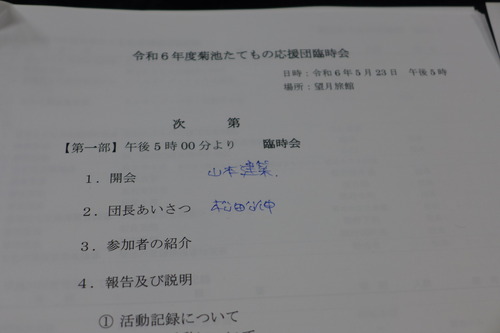 令和6年度菊池たてもの応援団臨時会
日時：令和6年5月23日 午後5時
場所：望月旅館
次 第
【第一部】午後5時00分より 臨時会
1．開会 山本建築
2．団長あいさつ 松田
3．参加者の紹介
4．報告及び説明
① 活動記録について